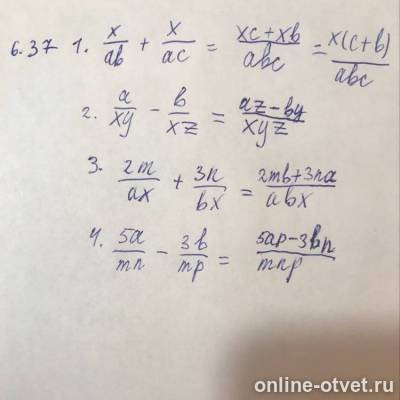 6.37 1. x/ab + x/ac = xc+xb/abc = x(c+b)/abc
2. a/xy - b/xz = az-by/xyz
3. 2m/ax + 3n/bx = 2mb+3na/abx
4. 5a/mn - 3b/mp = 5ap-3bn/mnp
online-otvet.ru